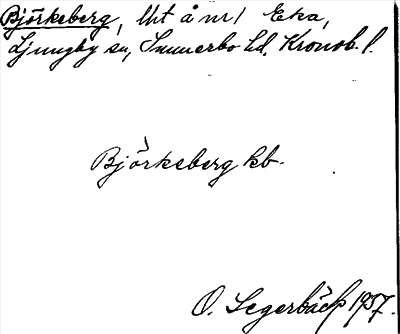 Björkeberg, lht å nr 1 Eka,
Ljungby sn, Sunnerbo hd, Kronob. l.
Björkeberg kb.
O. Segerbäck 1937.